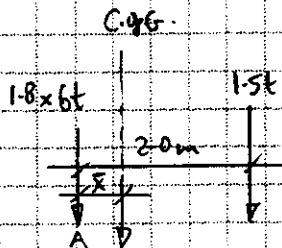 C.of G.
1.8 x 6t
1.5t
2.0m
x̄
A